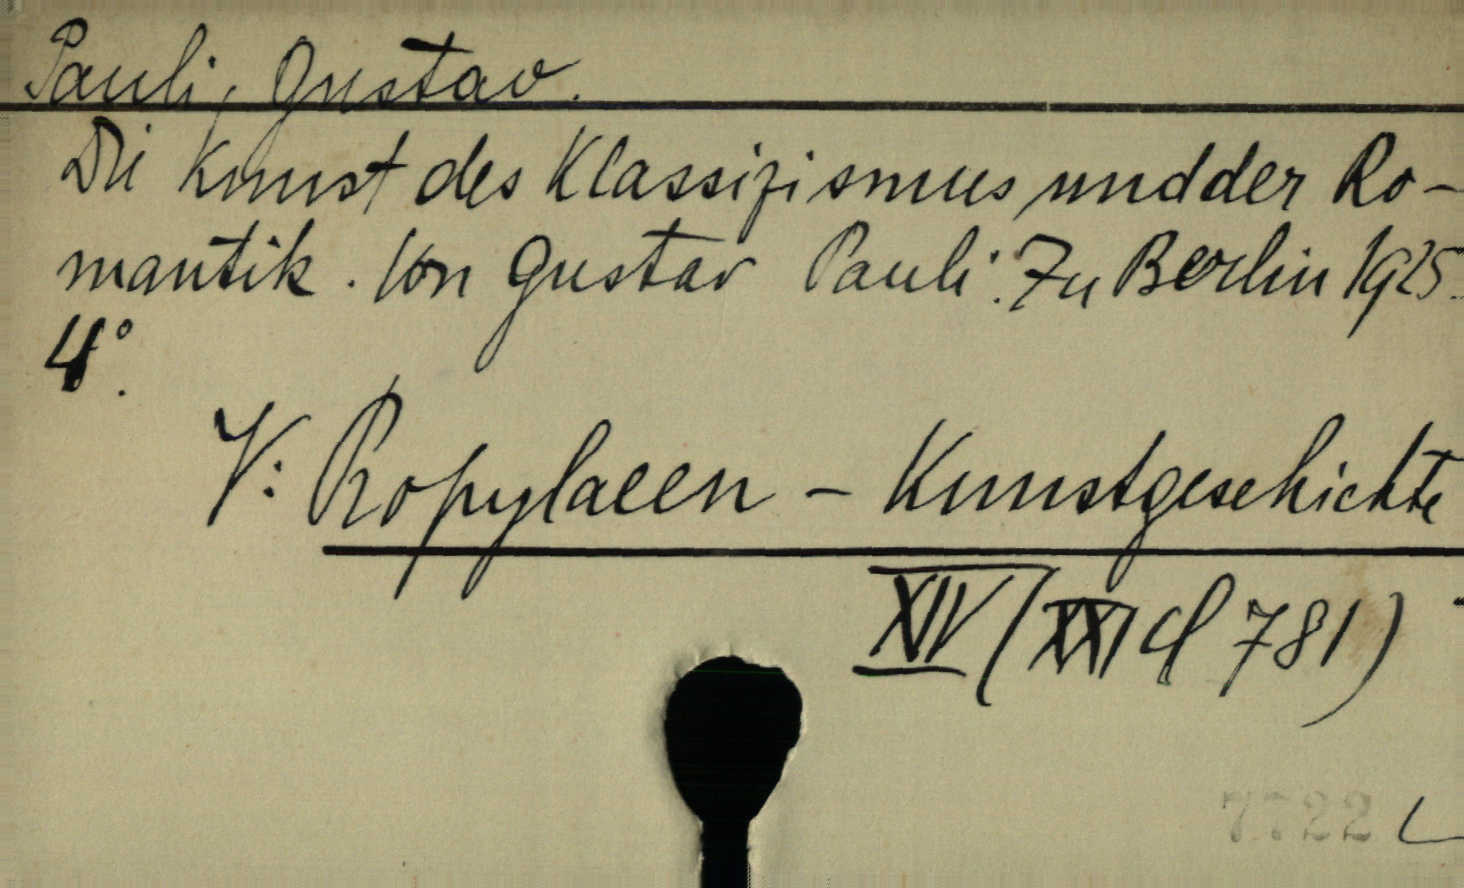 Pauli, Gustav.
Die Kunst des Klassizismus und der Ro-
mantik. Von Gustav Pauli. Zu Berlin 1925.
4°.
V: Propylaeen - Kunstgeschichte
XIV (XXI d 781)
7722